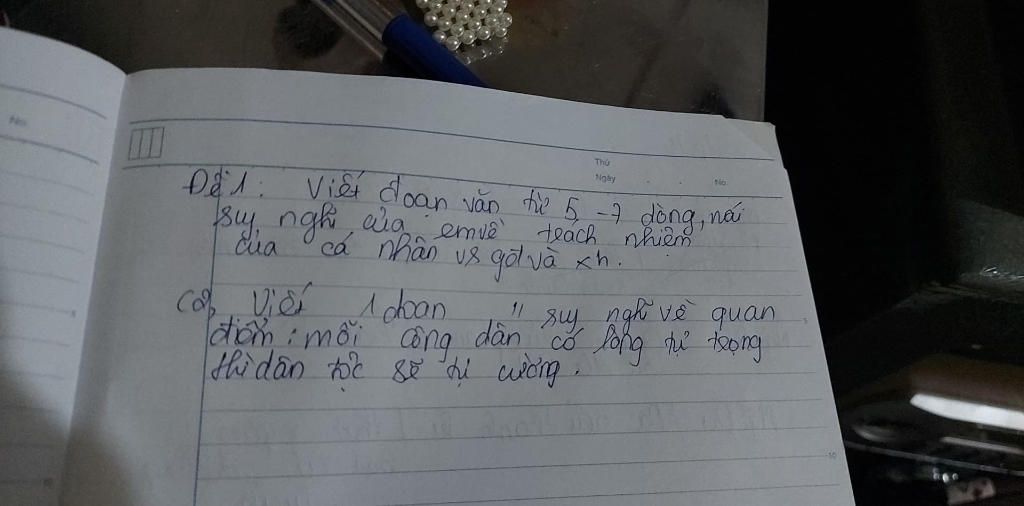 No
Thứ
Ngày . . No
Đề 1: Viết đoạn văn từ 5 - 7 dòng, nói
suy nghĩ của em về trách nhiệm
của cá nhân vs gđ và xh.
Viết 1 đoạn " suy nghĩ về quan
điểm: mỗi công dân có lòng tự trọng
thì dân tộc sẽ tự cường.